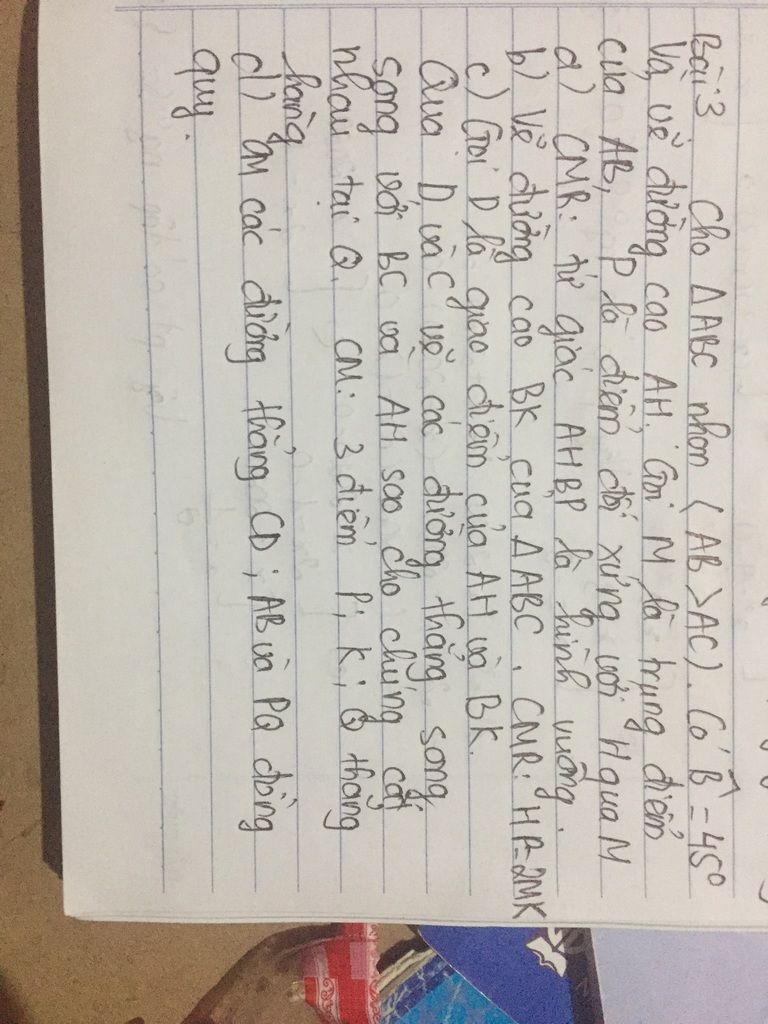 Bài 3 Cho ΔABC nhọn (AB > AC). Có B̂ = 45°
Và vẽ đường cao AH. Gọi M là trung điểm
của AB, P là điểm đối xứng với H qua M
a) CMR: tứ giác AHBP là hình vuông.
b) Vẽ đường cao BK của ΔABC. CMR: HP = 2MK
c) Gọi D là giao điểm của AH và BK.
Qua D và C vẽ các đường thẳng song
song với BC và AH sao cho chúng cắt
nhau tại Q. CM: 3 điểm P; K; Q thẳng
hàng
d) CM các đường thẳng CD; AB và PQ đồng
quy.